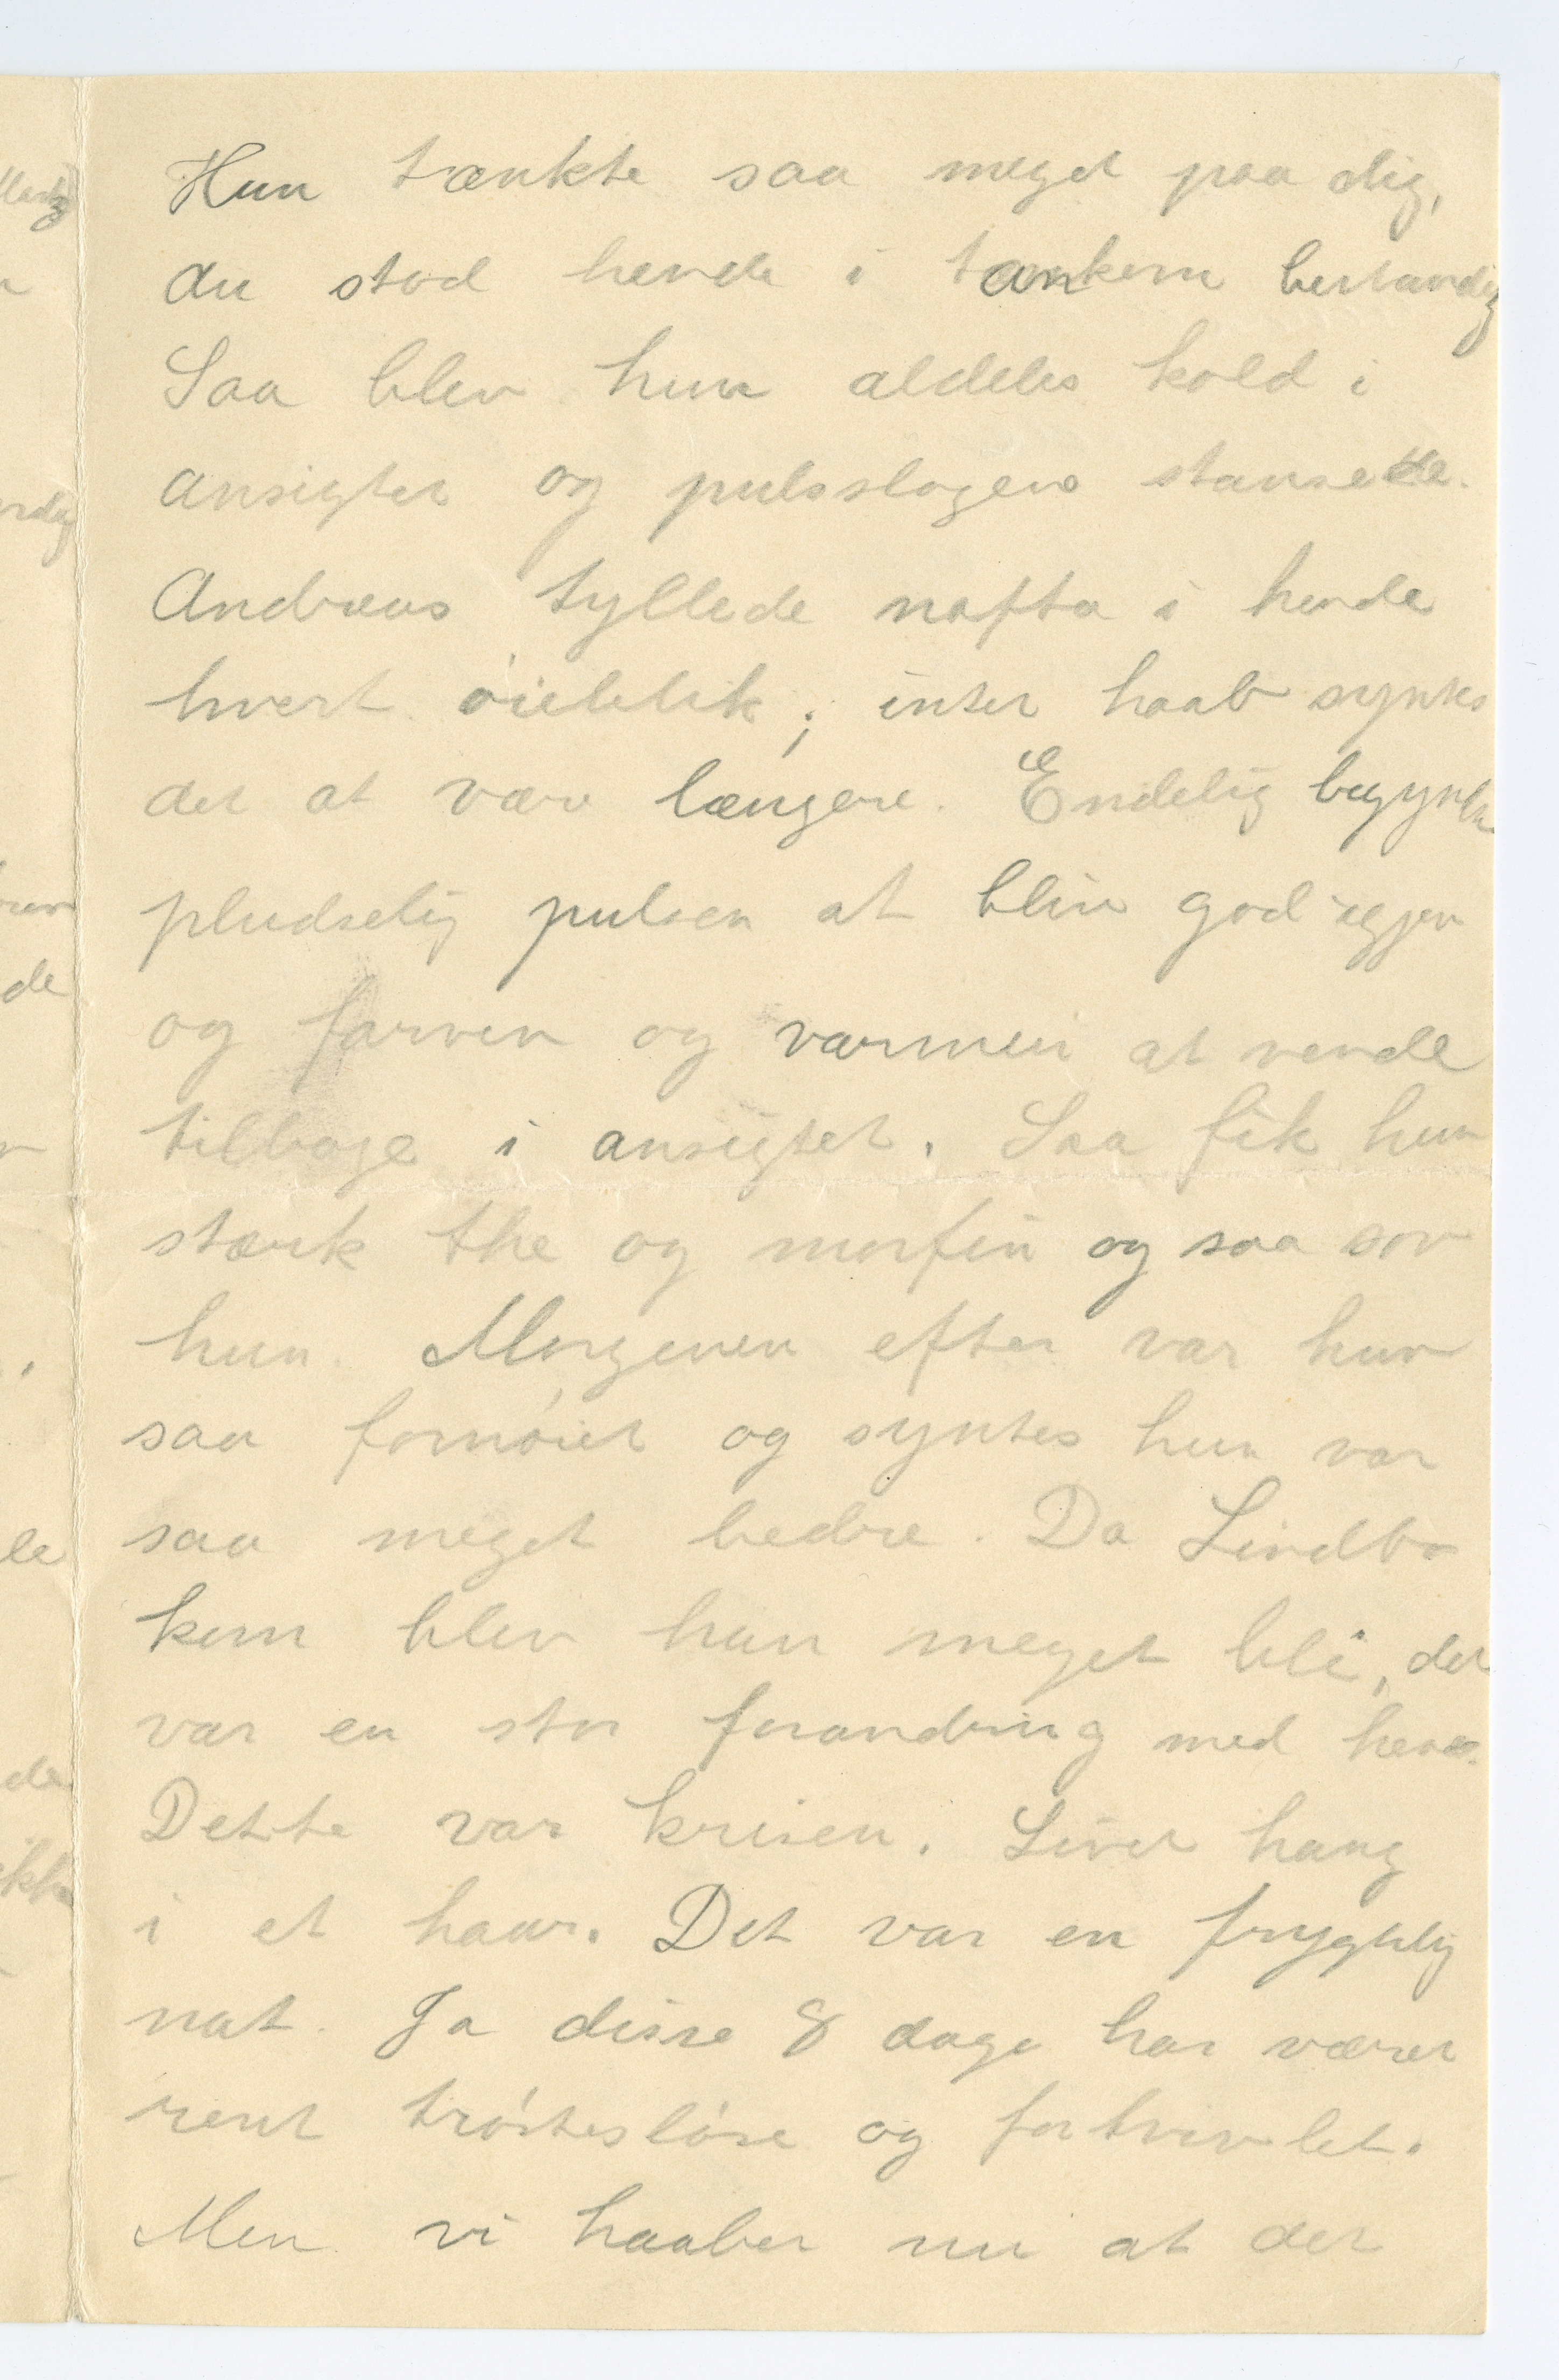 Hun tænkte saa meget paa dig,
du stod hende i tankern bestandig
Saa blev hun aldeles kold i
ansigtet og pulsslagene stansede.
Andreas tyllede nafta i hende
hvert øieblik; intet haab syntes
det at være længere. Endelig begynte
pludselig pulsen at blive god igjen
og farven og varmen at vende
tilbage i ansigtet. Saa fik hun
stærk the og morfin og saa sov
hun. Morgenen efter var hun
saa fornøiet og syntes hun var
saa meget bedre. Da Lindbo
kom blev han meget bli, det
var en stor forandring med hende.
Dette var krisen. Livet hang
i et haar. Det var en frygtelig
nat. Ja disse 8 dage har været
rent trøstesløse og fortvivlet.
Men vi haaber nu at det